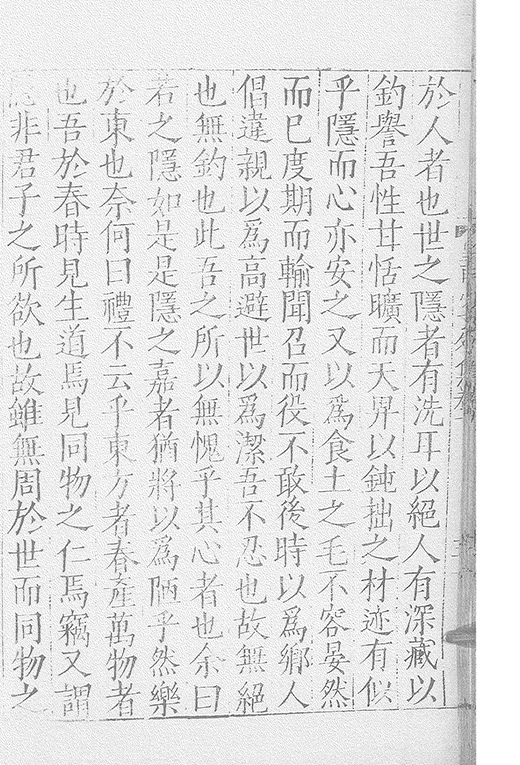 於人者也世之隱者有洗耳以絕人有深藏以
釣譽吾性甘恬曠而天畀以鈍拙之材迹有似
乎隱而心亦安之又以爲食土之毛不容晏然
而已度期而輸聞召而役不敢後時以爲鄉人
倡違親以爲高避世以爲潔吾不忍也故無絕
也無釣也此吾之所以無愧乎其心者也余曰
若之隱如是是隱之嘉者猶將以爲陋乎然樂
於東也奈何曰禮不云乎東方者春產萬物者
也吾於春時見生道焉見同物之仁焉竊又謂
非君子之所欲也故雖無周於世而同物之